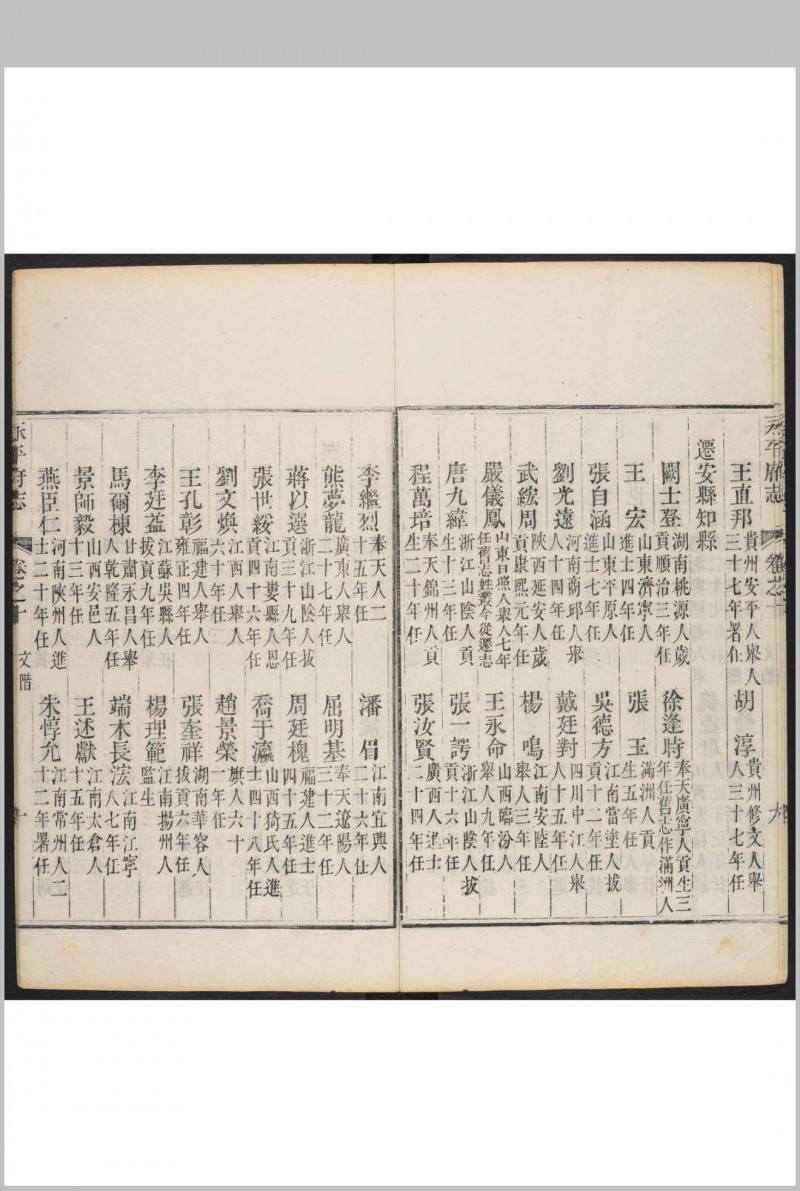 永平府志 卷之十 九
王直邦 貴州安平人舉人三十七年署任 胡淳 貴州修文人舉人三十七年任
遷安縣知縣
闞士登 湖南桃源人歲貢順治三年任 徐逢時 奉天廣寧人貢生三年任舊志作滿洲人
王宏 山東濟寧人進士四年任 張玉 滿洲人貢生五年任
張自涵 山東平原人進士七年任 吳德方 江南當塗人拔貢十二年任
劉光遠 河南商邱人舉人十四年任 戴廷對 四川中江人舉人十五年任
武綋周 陝西延安人歲貢康熙元年任 楊鳴 江南安陸人舉人三年任
嚴儀鳳 山東日照人舉人七年任舊志姓叢今從遷志 王永命 山西臨汾人舉人九年任
唐九緯 浙江山陰人貢生十三年任 張一諤 浙江山陰人拔貢十六年任
程萬培 奉天錦州人貢生二十年任 張汝賢 廣西人進士二十四年任
李繼烈 奉天人二十五年任 潘眉 江南宜興人二十六年任
熊夢龍 廣東人舉人二十七年任 屈明基 奉天遼陽人三十二年任
蔣以選 浙江山陰人拔貢三十九年任 周廷槐 福建人進士四十五年任
張世綏 江南婁縣人恩貢四十六年任 喬于瀛 山西猗氏人進士四十八年任
劉文煥 江西人舉人六十年任 趙景榮 旗人六十一年任
王孔彰 福建人舉人雍正四年任 張奎祥 湖南華容人拔貢六年任
李廷益 江蘇吳縣人拔貢九年任 楊理範 江南揚州人監生
馬爾楝 甘肅永昌人舉人乾隆五年任 端木長浤 江南江寧人七年任
景師毅 山西安邑人十三年任 王述獻 江南太倉人十五年任
燕臣仁 河南陝州人進士二十年任 朱惇允 江南常州人二十二年署任
永平府志 卷之十 文階 十